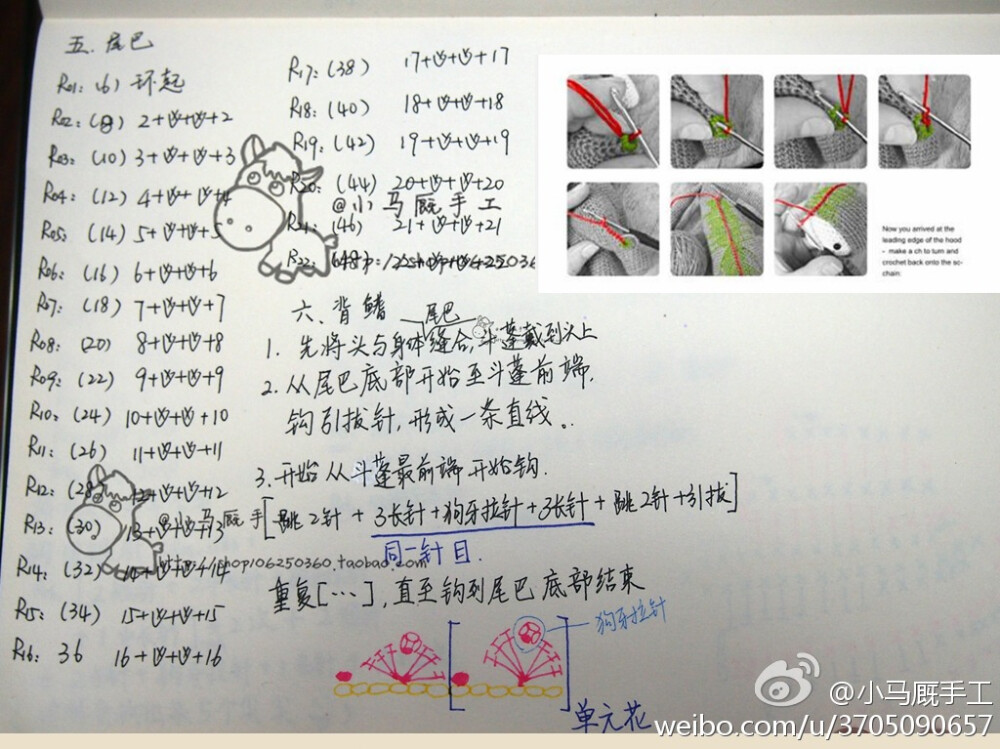 五、尾巴
R01: (6) 环起
R02: (8) 2+V+V+2
R03: (10) 3+V+V+3
R04: (12) 4+V+V+4
R05: (14) 5+V+V+5
R06: (16) 6+V+V+6
R07: (18) 7+V+V+7
R08: (20) 8+V+V+8
R09: (22) 9+V+V+9
R10: (24) 10+V+V+10
R11: (26) 11+V+V+11
R12: (28) 12+V+V+12
R13: (30) 13+V+V+13
R14: (32) 14+V+V+14
R15: (34) 15+V+V+15
R16: 36 16+V+V+16
R17: (38) 17+V+V+17
R18: (40) 18+V+V+18
R19: (42) 19+V+V+19
R20: (44) 20+V+V+20
@小马厩手工
R21: (46) 21+V+V+21
R22:
六、背鳍
尾巴
1. 先将头与身体缝合,斗蓬戴到头上
2. 从尾巴底部开始至斗蓬前端,
钩引拔针,形成一条直线。
3. 开始从斗蓬最前端开始钩.
[跳2针+3长针+狗牙拉针+3长针+跳2针+引拔]
同一针目.
@小马厩手
shop106250360.taobao.com
重复[…],直至钩到尾巴底部结束
狗牙拉针
单元花
Now you arrived at the
leading edge of the hood
- make a ch to turn and
crochet back onto the sc-
chain
@小马厩手工
weibo.com/u/3705090657